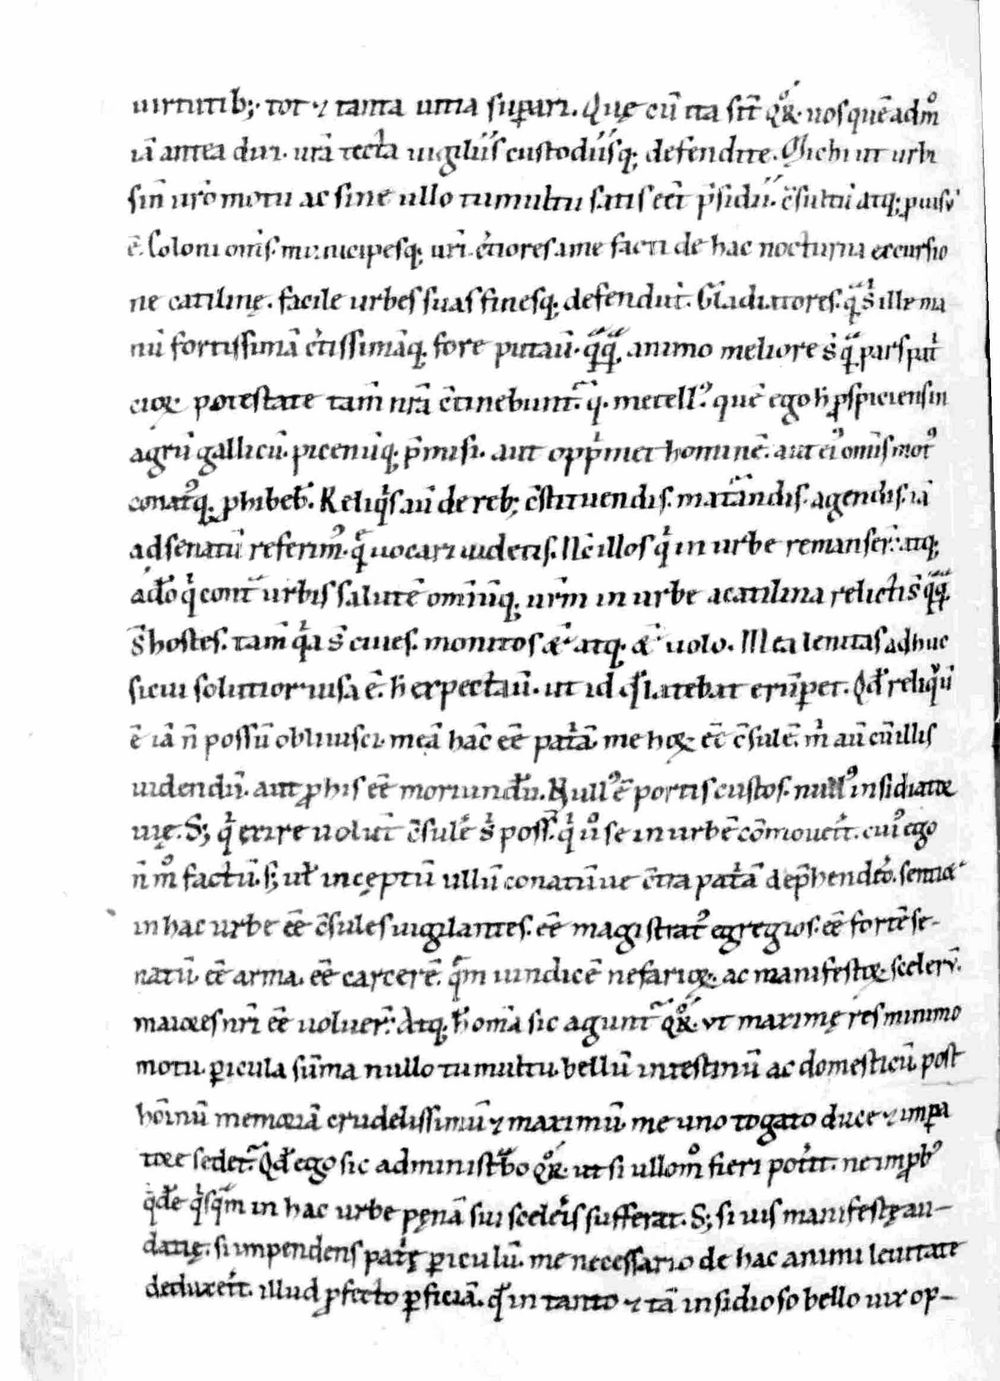 uirtutib;· tot ⁊ tanta uitia sup̄ari. Quę cū ita sīt Qͦꝝ. uos quē adm̊
iā antea dixi. ur̄a tecta uigiliis custodiisq; defendite. Michi ut urbi
sin̄ ur̄o motu ac sine ullo tumultu satis eēt p̄sidii. c̄sultū atq; puisū
ē. Coloni om̄s. municipesq; ur̄i. c̄tiores a me facti de hac nocturna excursio
ne catilinę. facile urbes suas finesq; defendūt. Gladiatores. q̄ s̄ ille ma
nū fortissimā c̄tissimāq; fore putauit. q̄q̄ animo meliore s̄ q̄ pars pat̄
cioꝝ potestate tam̄ nr̄a c̄tinebunt̄. q̄. metell᷒. quē ego h̄ ꝓspiciens in
agrū gallicū. picenūq; p̄misi. aut opp̄met hominē. aut ei᷒ om̄is mot᷒
conat᷒q; ꝓhibeb̄. Reliq̄s aū de reb; c̄stituendis. maturandis. agendis. iā
ad senatū referim᷒. q̄ uocari uidetis. Nc̄ illos q̄ in urbe remanser̄. atq;
adeo q̄ cont̄ urbis salutē omniūq; ur̄m in urbe a catilina relicti s̄ q̄q̄
s̄ hostes. tam̄ q̄a s̄ ciues. monitos &̄ atq; &̄ uolo. Mea lenitas adhuc
sicui solutior uisa ē. h̄ expectauit. ut id q̄ latebat erūpet. Qd̄ reliq̄ū
ē iā n̄ possū obliuisci. meā hāc eē pat̄ā. me hoꝝ eē c̄sulē. m̄ aū cū illis
uidendū. aut ꝓ his eē moriundū. Null᷒ ē portis custos. null᷒ insidiatoꝛ
uię. S; q̄ exire uolūt c̄sulē s̄ poss̄. q̄ ů se in urbē cōmouerīt. cui᷒ ego
n̄ m̊ factū. s; ul̄ inceptū ullū conatūue c̄tra pat̄ā dep̄hendero. sentiet
in hac urbe eē c̄sules uigilantes. eē magistrat᷒ egregios. eē fortē se-
natū. eē arma. eē carcerē. q̄m uindicē nefarioꝝ. ac manifestoꝝ scelerū.
maiores nr̄i eē uoluer̄. Atq; h̄ om̄ia sic agunt̄ Qͦꝝ. ut maximę res minimo
motu. ꝑicula sūma nullo tumultu. bellū intestinū ac domesticū post
hōinū memoꝛiā crudelissimū ⁊ maximū. me uno togato duce ⁊ imp̄a
toꝛe sedet̄. Qd̄ ego sic administ̄bo Qͦꝝ. ut si ullom̊ fieri pot̄it. ne imꝓb᷒
q̄de q̄sq̄m in hac urbe pęnā sui sceleris sufferat. S; si uis manifestę au-
datię. si impendens pat̄ę ꝑiculū. me necessario de hac animi lenitate
deduxer̄t. illud ꝓfecto ꝑficiā. qd̄ in tanto ⁊ tā insidioso bello uix op-